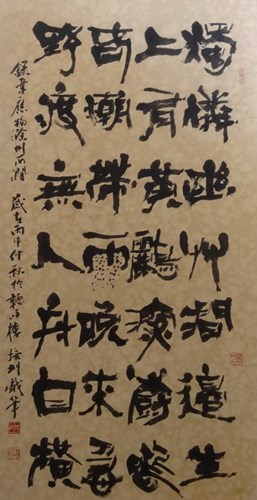 獨憐幽艸澗邊生
上有黃鸝深樹鳴
春潮帶雨晚來急
野渡無人舟自橫
錄韋應物滁州西澗 歲在丙申仲秋於聽雨樓 戲筆